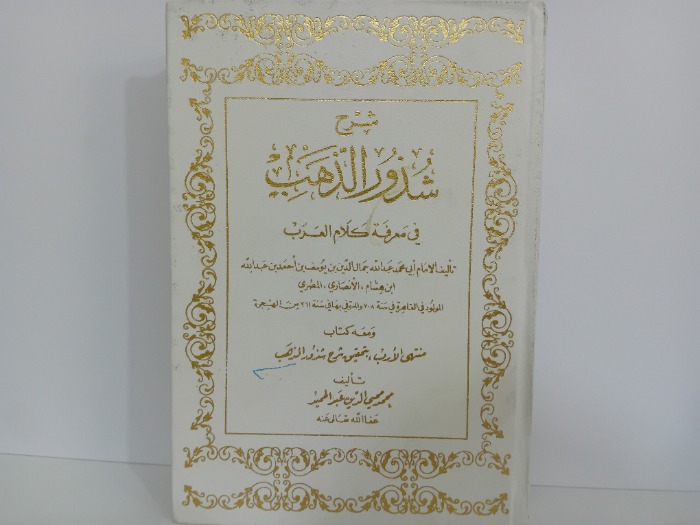 شرح
شذور الذهب
في معرفة كلام العرب
تأليف الإمام أبي محمد عبدالله جمال الدين بن يوسف بن أحمد بن عبدالله
ابن هشام، الأنصاري، المصري
المولود في القاهرة في سنة ٧٠٨ والمتوفى بها في سنة ٧٦١ من الهجرة
ومعه كتاب
منتهى الأرب، بتحقيق شرح شذور الذهب
تأليف
محمد محيي الدين عبد الحميد
عفا الله تعالى عنه